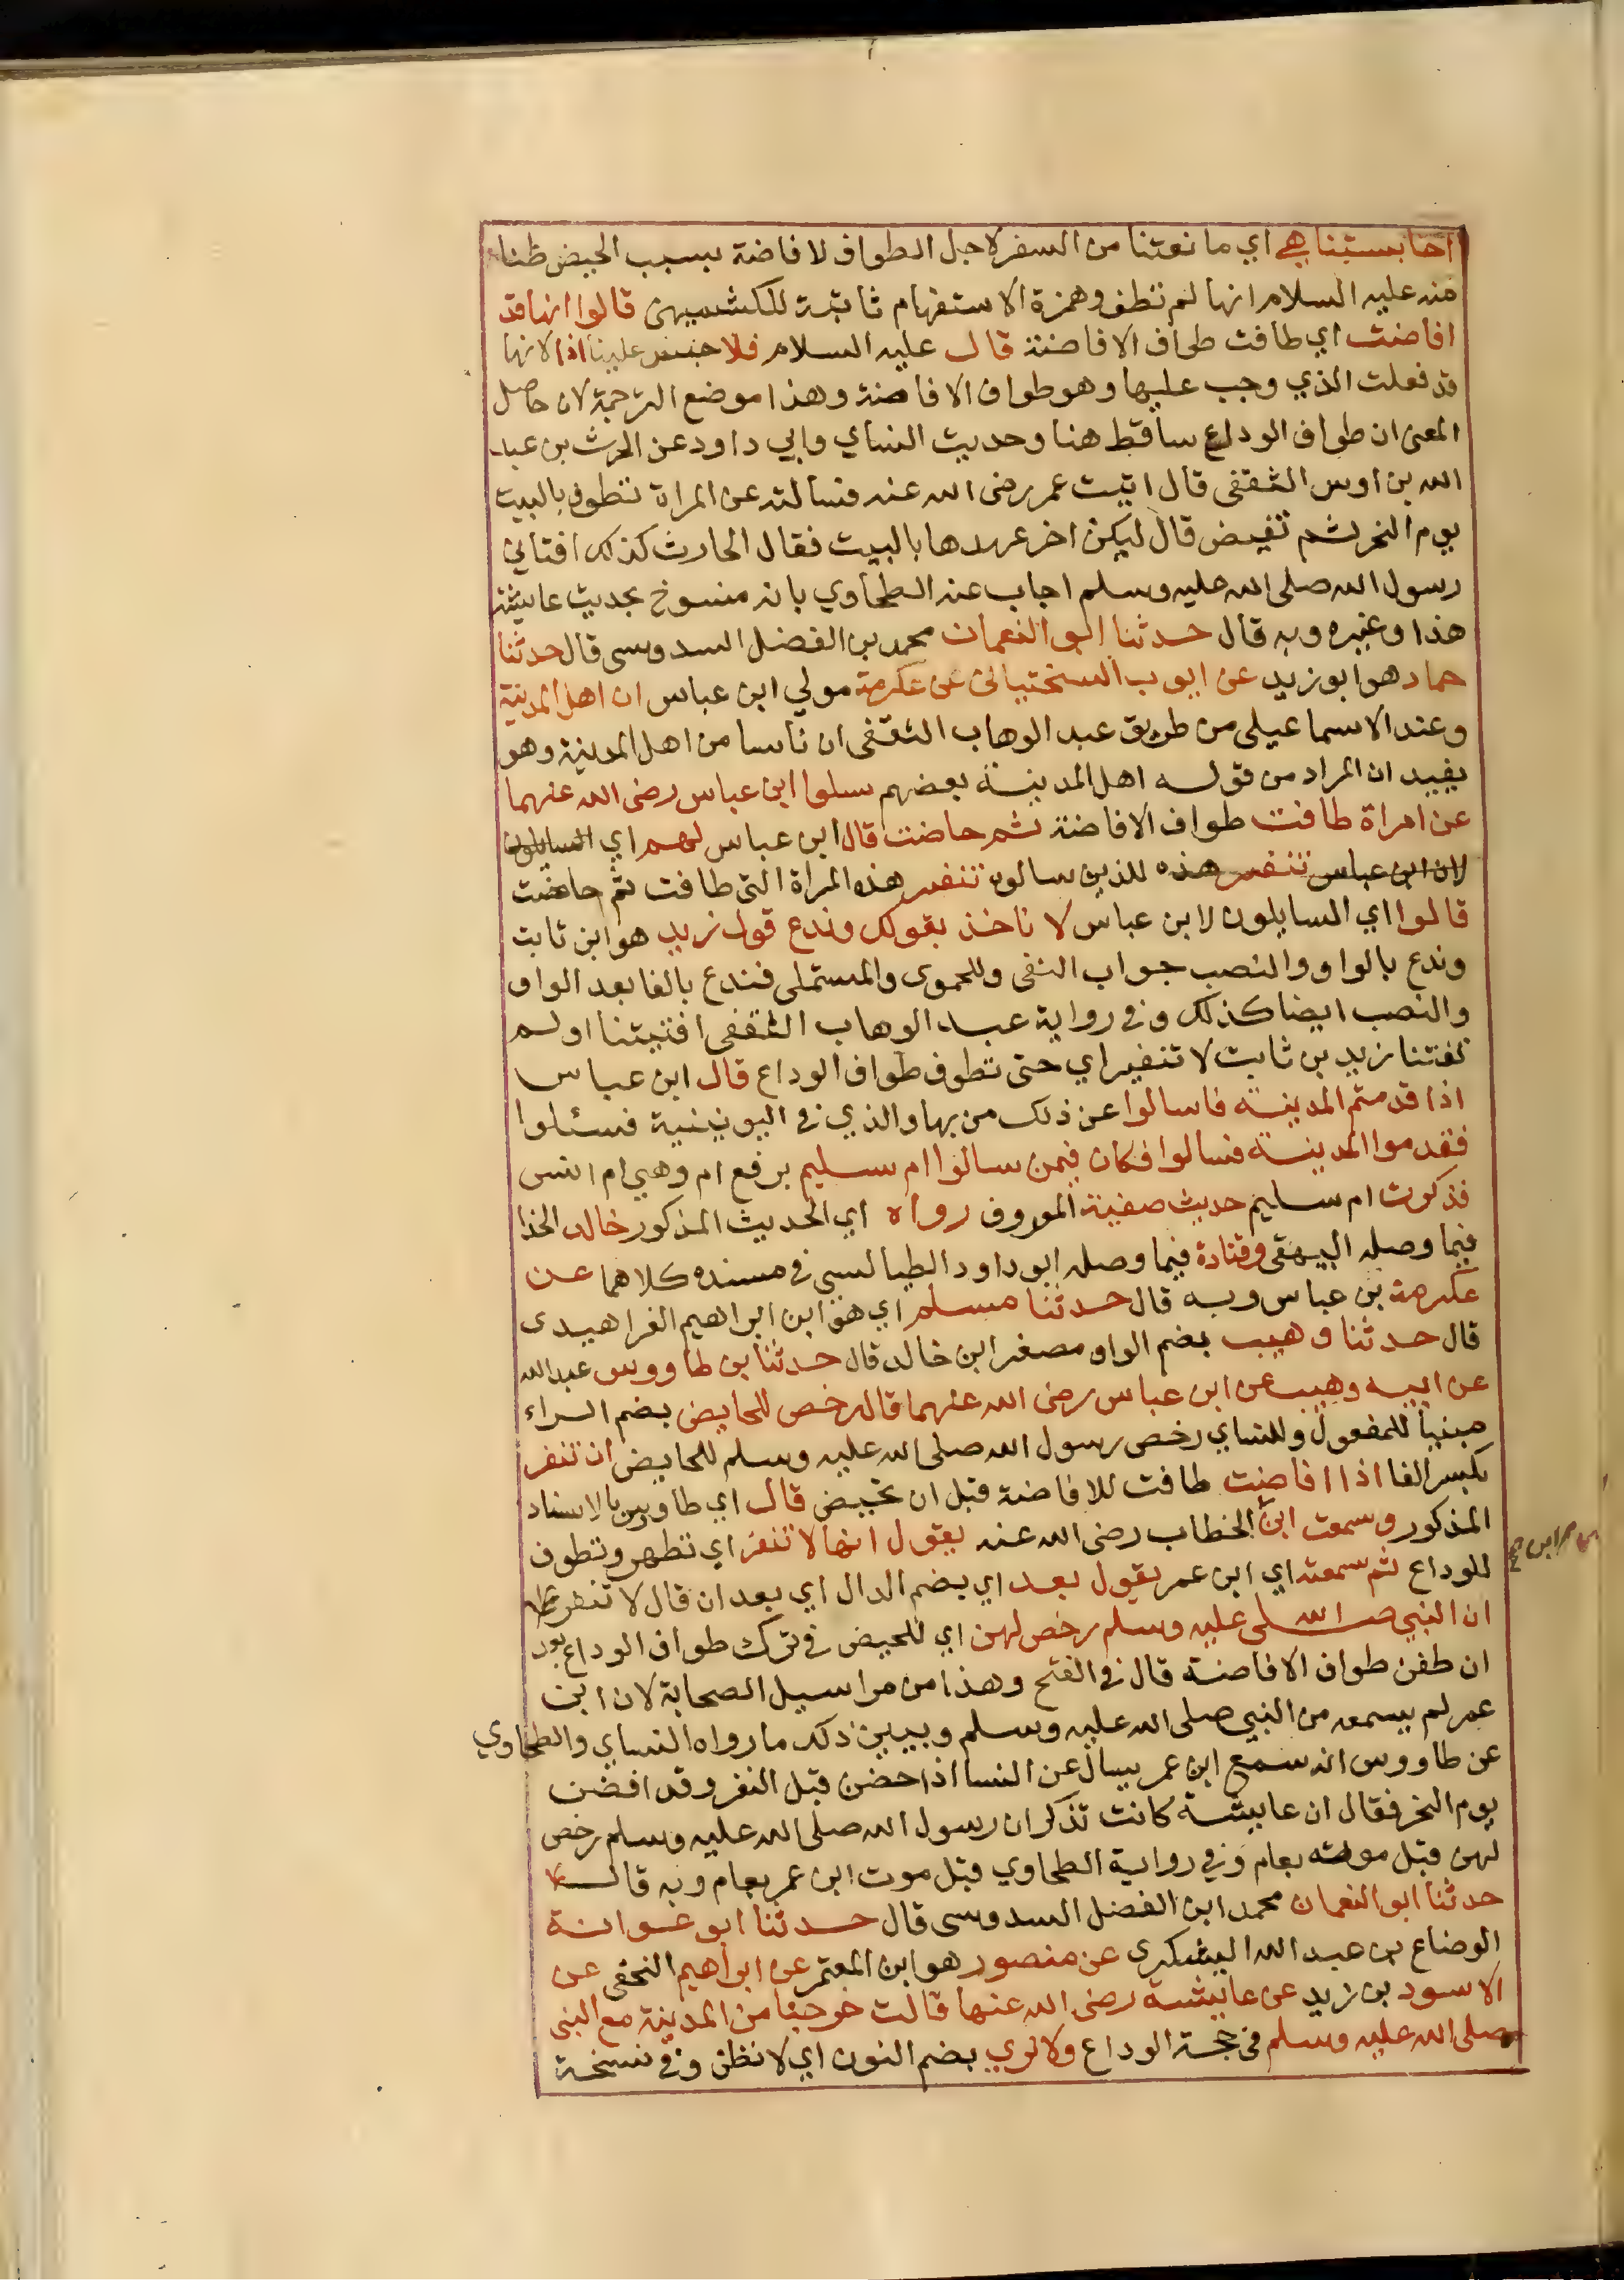 احابستنا هي اي مانعتنا من السفر لاجل الطواف لافاضة بسبب الحيض ظنا
منه عليه السلام انها لم تطف وهمزة الاستفهام ثابتة للكشميهنى قالوا انها قد
افاضت اي طافت طواف الافاضة قال عليه السلام فلا حبس علينا اذا لانها
قد فعلت الذي وجب عليها وهو طواف الافاضة وهذا موضع الترجمة لان حاصل
المعنى ان طواف الوداع ساقط هنا وحديث النساي وابي داود عن الحرث بن عبد
الله بن اوس الثقفى قال اتيت عمر رضى الله عنه فسالته عن المراة تطوف بالبيت
يوم النحر ثم تفيض قال ليكن اخر عهدها بالبيت فقال الحارث كذلك افتاني
رسول الله صلى الله عليه وسلم اجاب عنه الطحاوي بانه منسوخ بحديث عايشة
هذا وغيره وبه قال حدثنا ابو النعمان محمد بن الفضل السدوسى قال حدثنا
حماد هو ابو زيد عن ايوب السختيانى عن عكرمة مولي ابن عباس ان اهل المدينة
وعند الاسماعيلى من طريق عبد الوهاب الثقفى ان ناسا من اهل المدينة وهو
يفيد ان المراد من قوله اهل المدينة بعضهم سلوا ابن عباس رضى الله عنهما
عن امراة طافت طواف الافاضة ثم حاضت قال ابن عباس لهم اي السايلون
لان ابن عباس تنفر هذه للذين سالوه تنفر هذه المراة التى طافت ثم حاضت
قالوا اي السايلون لابن عباس لا ناخذ بقولك وندع قول زيد هو ابن ثابت
وندع بالواو والنصب جواب النفى وللحموى والمستملى فندع بالفا بعد الواو
والنصب ايضا كذلك وفي رواية عبد الوهاب الثقفى افتيتنا اولم
تفتنا زيد بن ثابت لا تنفير اي حتى تطوف طواف الوداع قال ابن عباس
اذا قدمتم المدينة فاسالوا عن ذلك من بها والذي في اليونينية فسئلوا
فقدموا المدينة فسالوا فكان فيمن سالوا ام سليم برفع ام وهي ام انس
فذكرت ام سليم حديث صفية المعروف رواه اي الحديث المذكور خالد الحذا
فيما وصله البيهقى وقتادة فيما وصله ابو داود الطيالسي في مسنده كلاهما عن
عكرمة بن عباس وبه قال حدثنا مسلم اي هو ابن ابراهيم الفراهيدى
قال حدثنا وهيب بضم الواو مصغر ابن خالد قال حدثنا بن طاووس عبد الله
عن ابيه وهيب عن ابن عباس رضى الله عنهما قال رخص للحايض بضم الراء
مبنيا للمفعول وللنساي رخص رسول الله صلى الله عليه وسلم للحايض ان تنفر
بكسر الفا اذا افاضت طافت للافاضة قبل ان تحيض قال اي طاووس بالاسناد
المذكور وسمعت ابن الخطاب رضى الله عنه يقول انها لا تنفر اي تطهر وتطوف
للوداع ثم سمعته اي ابن عمر يقول بعد اي بضم الدال اي بعد ان قال لا تنفر
ان النبي صلى الله عليه وسلم رخص لهن اي للحيض في ترك طواف الوداع بعد
ان طفن طواف الافاضة قال في الفتح وهذا من مراسيل الصحابة لان ابن
عمر لم يسمعه من النبي صلى الله عليه وسلم ويبين ذلك ما رواه النساي والطحاوي
عن طاووس انه سمع ابن عمر يسال عن النسا اذا حضن قبل النفر وقد افضن
يوم النحر فقال ان عايشة كانت تذكر ان رسول الله صلى الله عليه وسلم رخص
لهن قبل موته بعام وفي رواية الطحاوي قبل موت ابن عمر بعام وبه قال
حدثنا ابو النعمان محمد ابن الفضل السدوسى قال حدثنا ابو عوانة
الوضاع بن عبد الله اليشكرى عن منصور هو ابن المعتمر عن ابراهيم النخعى عن
الاسود بن زيد عن عايشة رضى الله عنها قالت خرجنا من المدينة مع النبى
صلى الله عليه وسلم في حجة الوداع ولا نري بضم النون اي لا نظن وفي نسخة